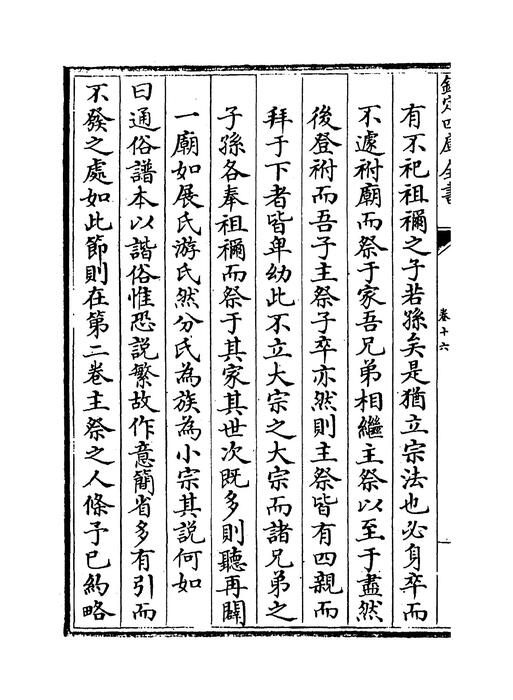 欽定四庫全書
卷十六
有不祀祖禰之子若孫矣是猶立宗法也必身卒而
不遽祔廟而祭于家吾兄弟相繼主祭以至于盡然
後登祔而吾子主祭子卒亦然則主祭皆有四親而
拜于下者皆卑幼此不立大宗之大宗而諸兄弟之
子孫各奉祖禰而祭于其家其世次既多則聽再闢
一廟如展氏游氏然分氏為族為小宗其說何如
曰通俗譜本以諧俗惟恐説繁故作意簡省多有引而
不發之處如此節則在第二卷主祭之人條予已約略